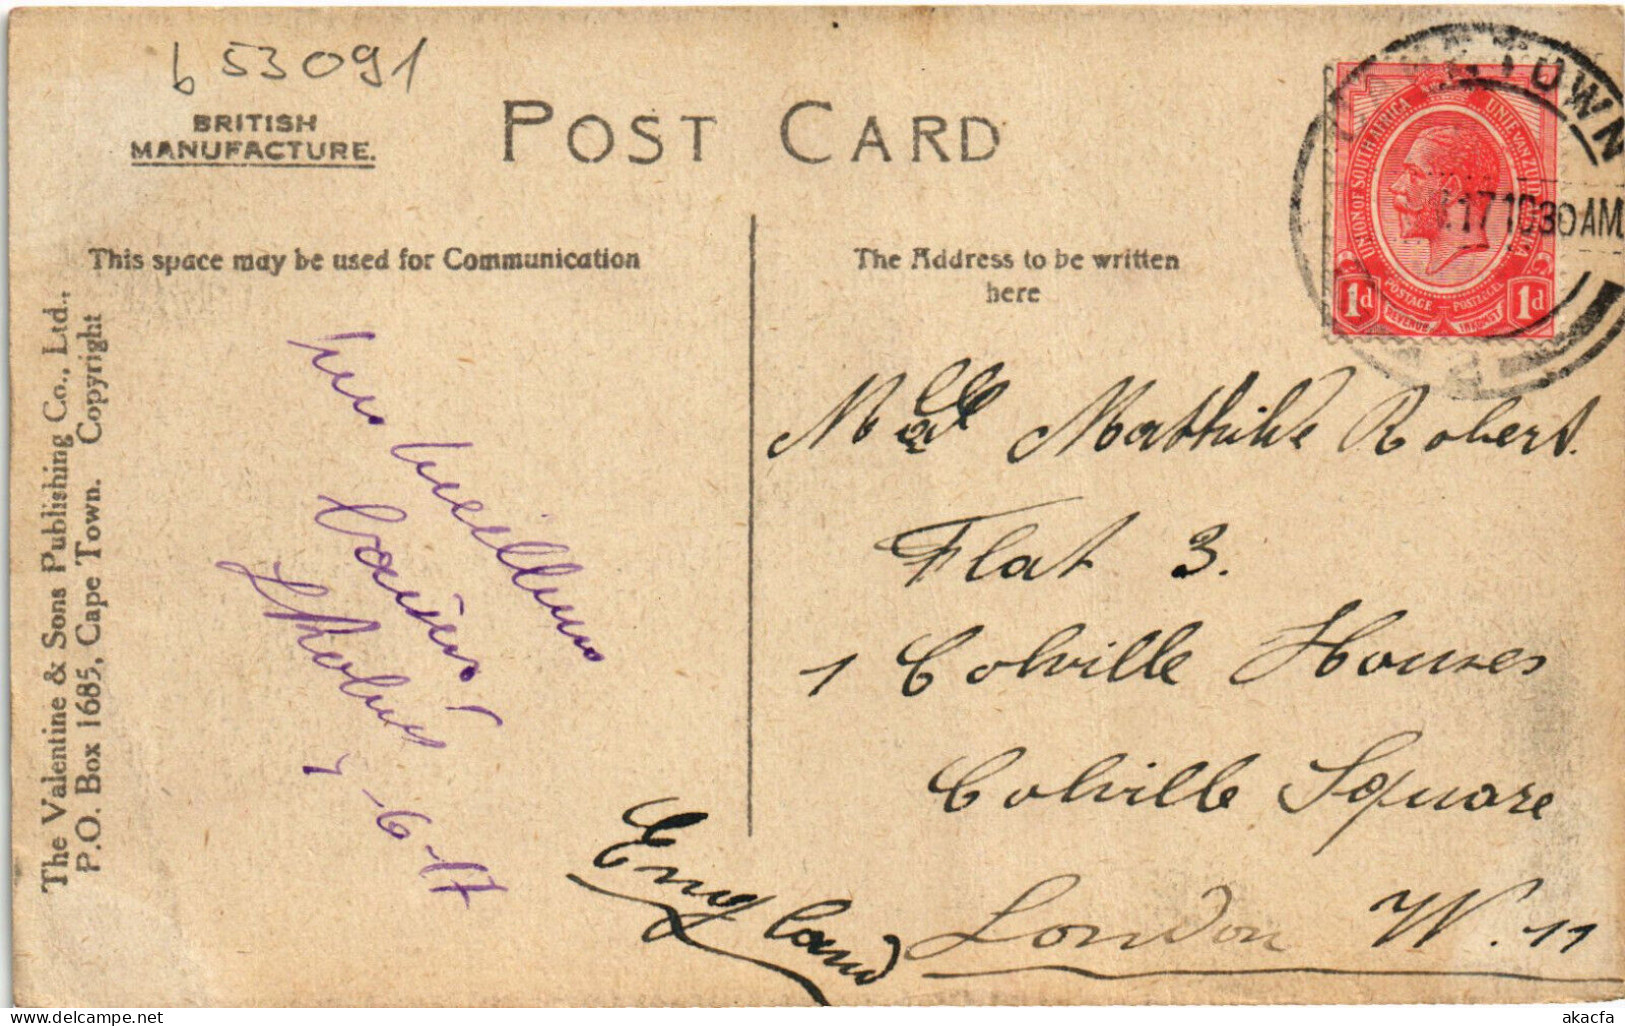 b 53091
BRITISH
MANUFACTURE.
POST CARD
This space may be used for Communication
The Address to be written
here
The Valentine & Sons Publishing Co., Ltd.,
P.O. Box 1685, Cape Town. Copyright
TOWN
17 1030AM
UNION OF SOUTH AFRICA
UNIE VAN ZUID AFRIKA
POSTAGE POSTZEGEL
REVENUE INKOMST
1d 1d
7-6-17
Mathilde Robert.
Flat 3.
1 Colville Houses
Colville Square
London W. 11
England
akacfa